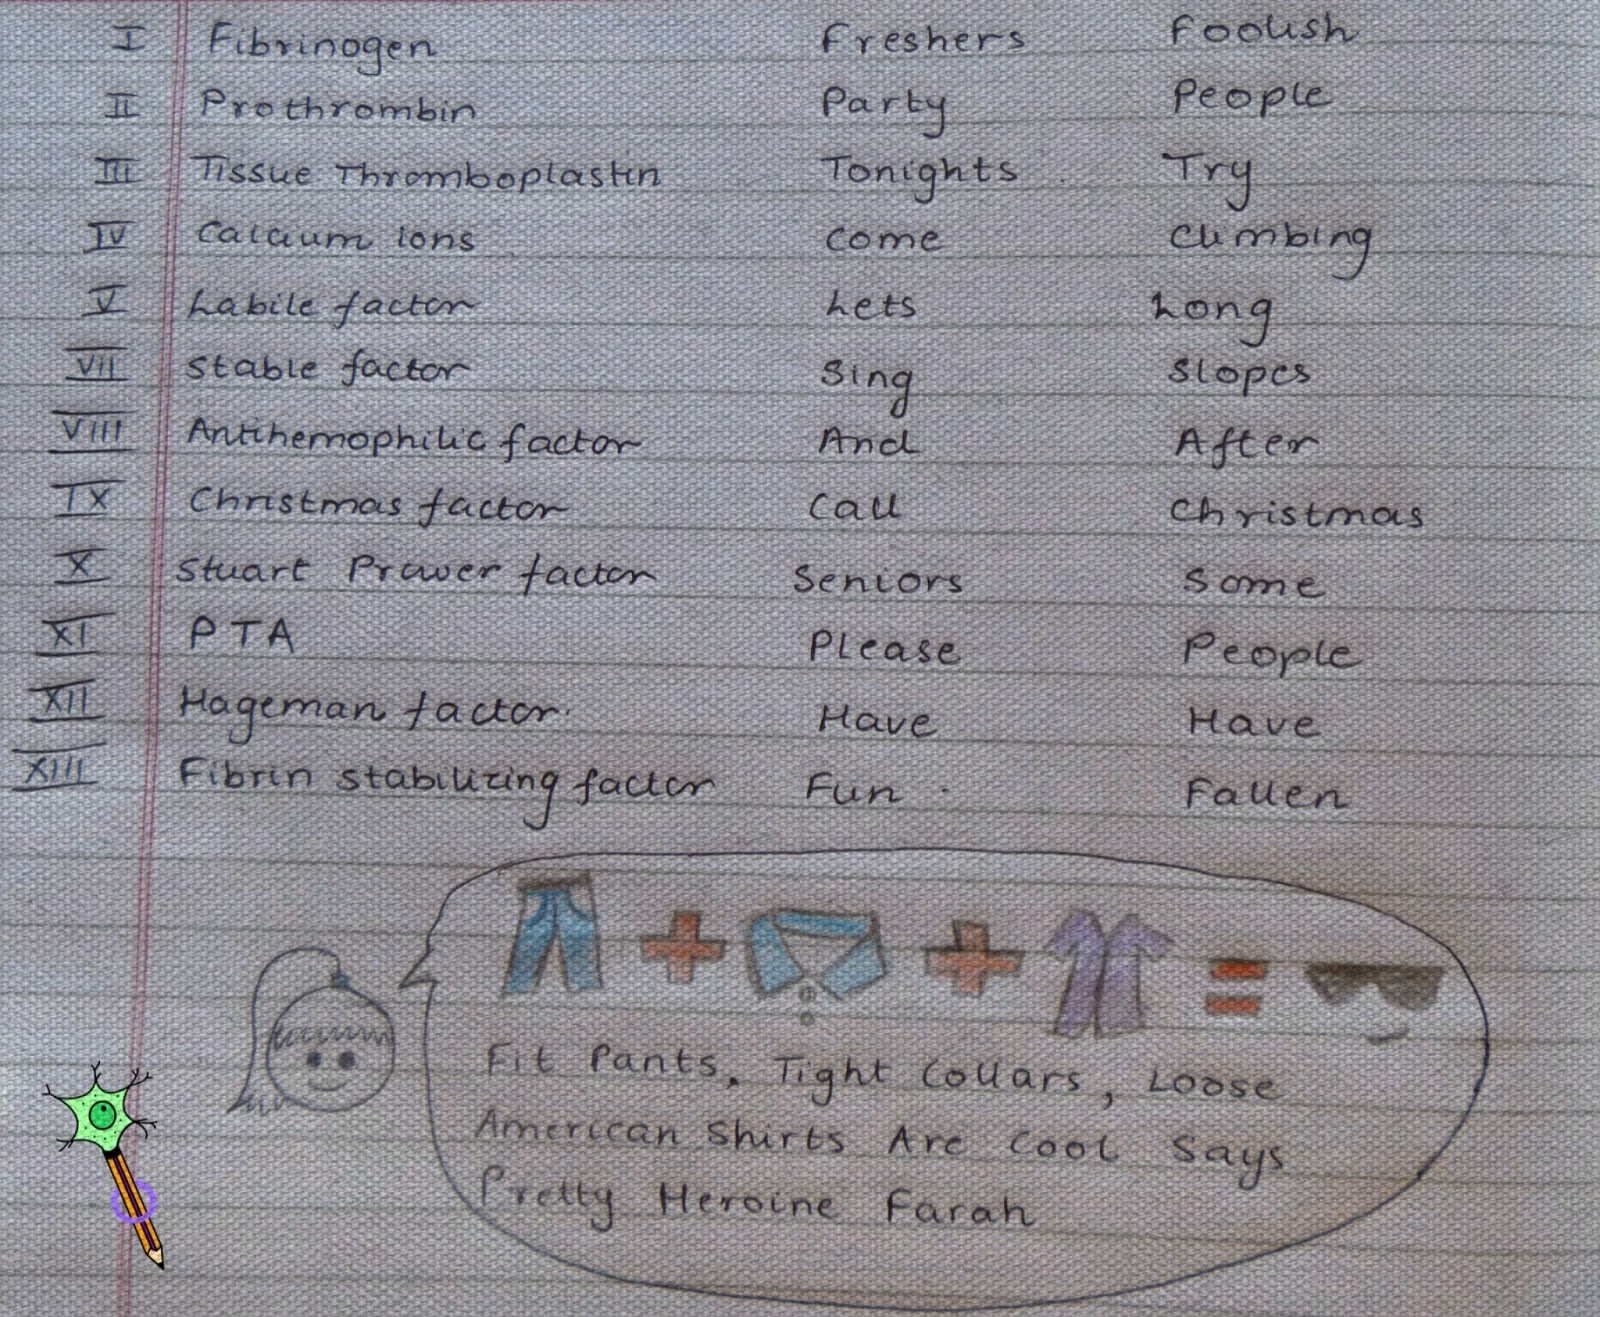 I Fibrinogen Freshers Foolish
II Prothrombin Party People
III Tissue Thromboplastin Tonights Try
IV Calcium ions Come Climbing
V Labile factor Lets Long
VII Stable factor Sing Slopes
VIII Antihemophilic factor And After
IX Christmas factor Call Christmas
X Stuart Prower factor Seniors Some
XI PTA Please People
XII Hageman factor. Have Have
XIII Fibrin stabilizing factor Fun. Fallen
Fit Pants, Tight Collars, Loose
American Shirts Are Cool Says
Pretty Heroine Farah